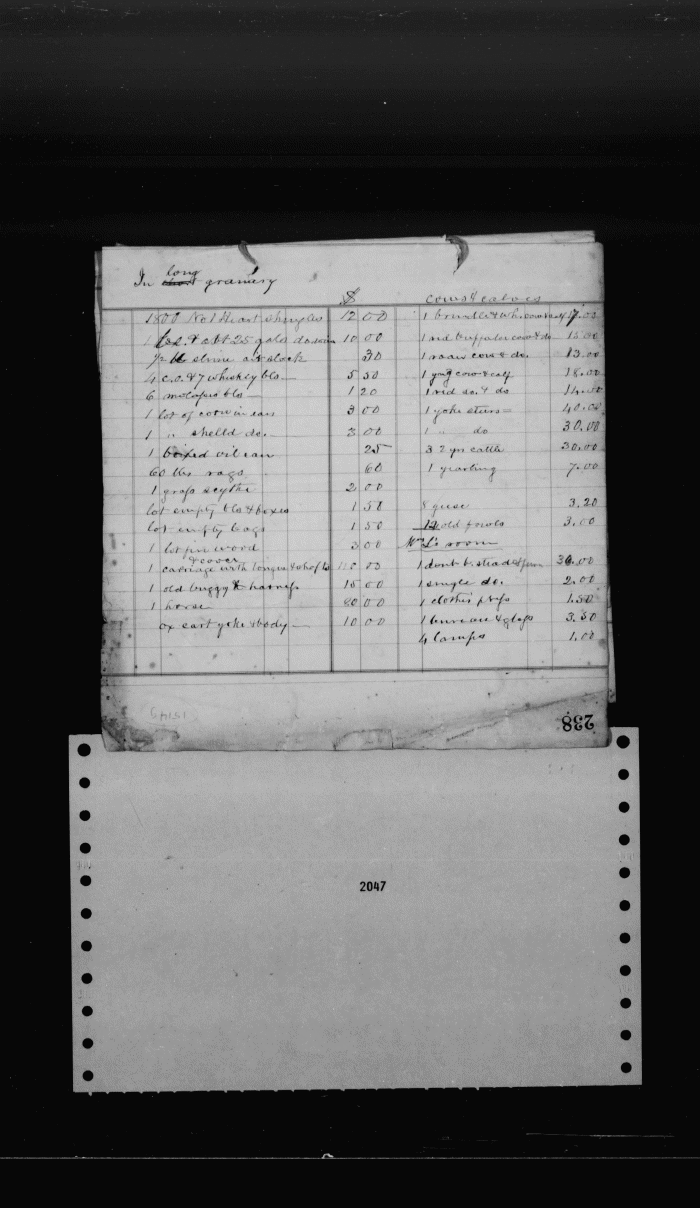 long
In short granery
$
1800 No1 Heart shingles 12 00
1 & abt 25 gals do 10 00
1/2 strine & stock 30
4 c.o. & 7 whiskey bls 5 50
6 molasses bls 1 20
1 lot of corn in ear 3 00
1 " shelld do. 3 00
1 boxed oil can 25
60 lbs rags 60
1 grass scythe 2 00
lot empty bls & boxes 1 50
lot empty bags 1 50
1 lot pine wood 3 00
& cover
1 carriage with tongue & shafts 110 00
1 old buggy & harness 15 00
1 horse 80 00
ox cart yoke & body 10 00
cows & calves
1 brindle & wh. cow & calf 17.00
1 red buffalo cow & do 15.00
1 roan cow & do. 13.00
1 yng cow & calf 18.00
1 red do. & do 14.00
1 yoke steers 40.00
1 " do 30.00
3 2 yrs cattle 30.00
1 yearling 7.00
8 geese 3.20
12 old fowls 3.00
Mrs L's room
1 b. stead & 30.00
1 single do. 2.00
1 clothes press 1.50
1 bureau & glass 3.50
4 lamps 1.00
15145
238
2047